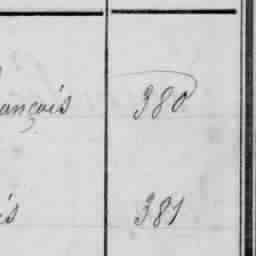 ançois 380
is 381